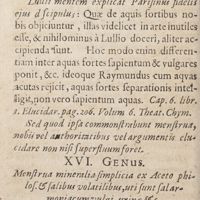 Lulli mentem explicat Parisinus fidelis
ejus discipulus: Quæ de aquis fortibus no-
bis objiciuntur, illas videlicet in arte inutiles
esse, & nihilominus à Lullio doceri, aliter ac-
cipienda sunt. Hoc modo enim differen-
tiam inter aquas fortes sapientum & vulgares
ponit, &c. ideoque Raymundus cum aquas
acutas rejicit, aquas fortes separationis intel-
ligit, non vero sapientum aquas. Cap. 6. libr.
1. Elucidar. pag. 206. Volum 6. Theat. Chym.
Sed quod ipsa commonstrabunt menstrua,
nobis vel authoritatibus vel argumentis elu-
cidare non nisi superfluum foret.
XVI. Genus.
Menstrua mineralia simplicia ex Aceto philo-
sof. & salibus volatilibus, uti sunt sal ar-